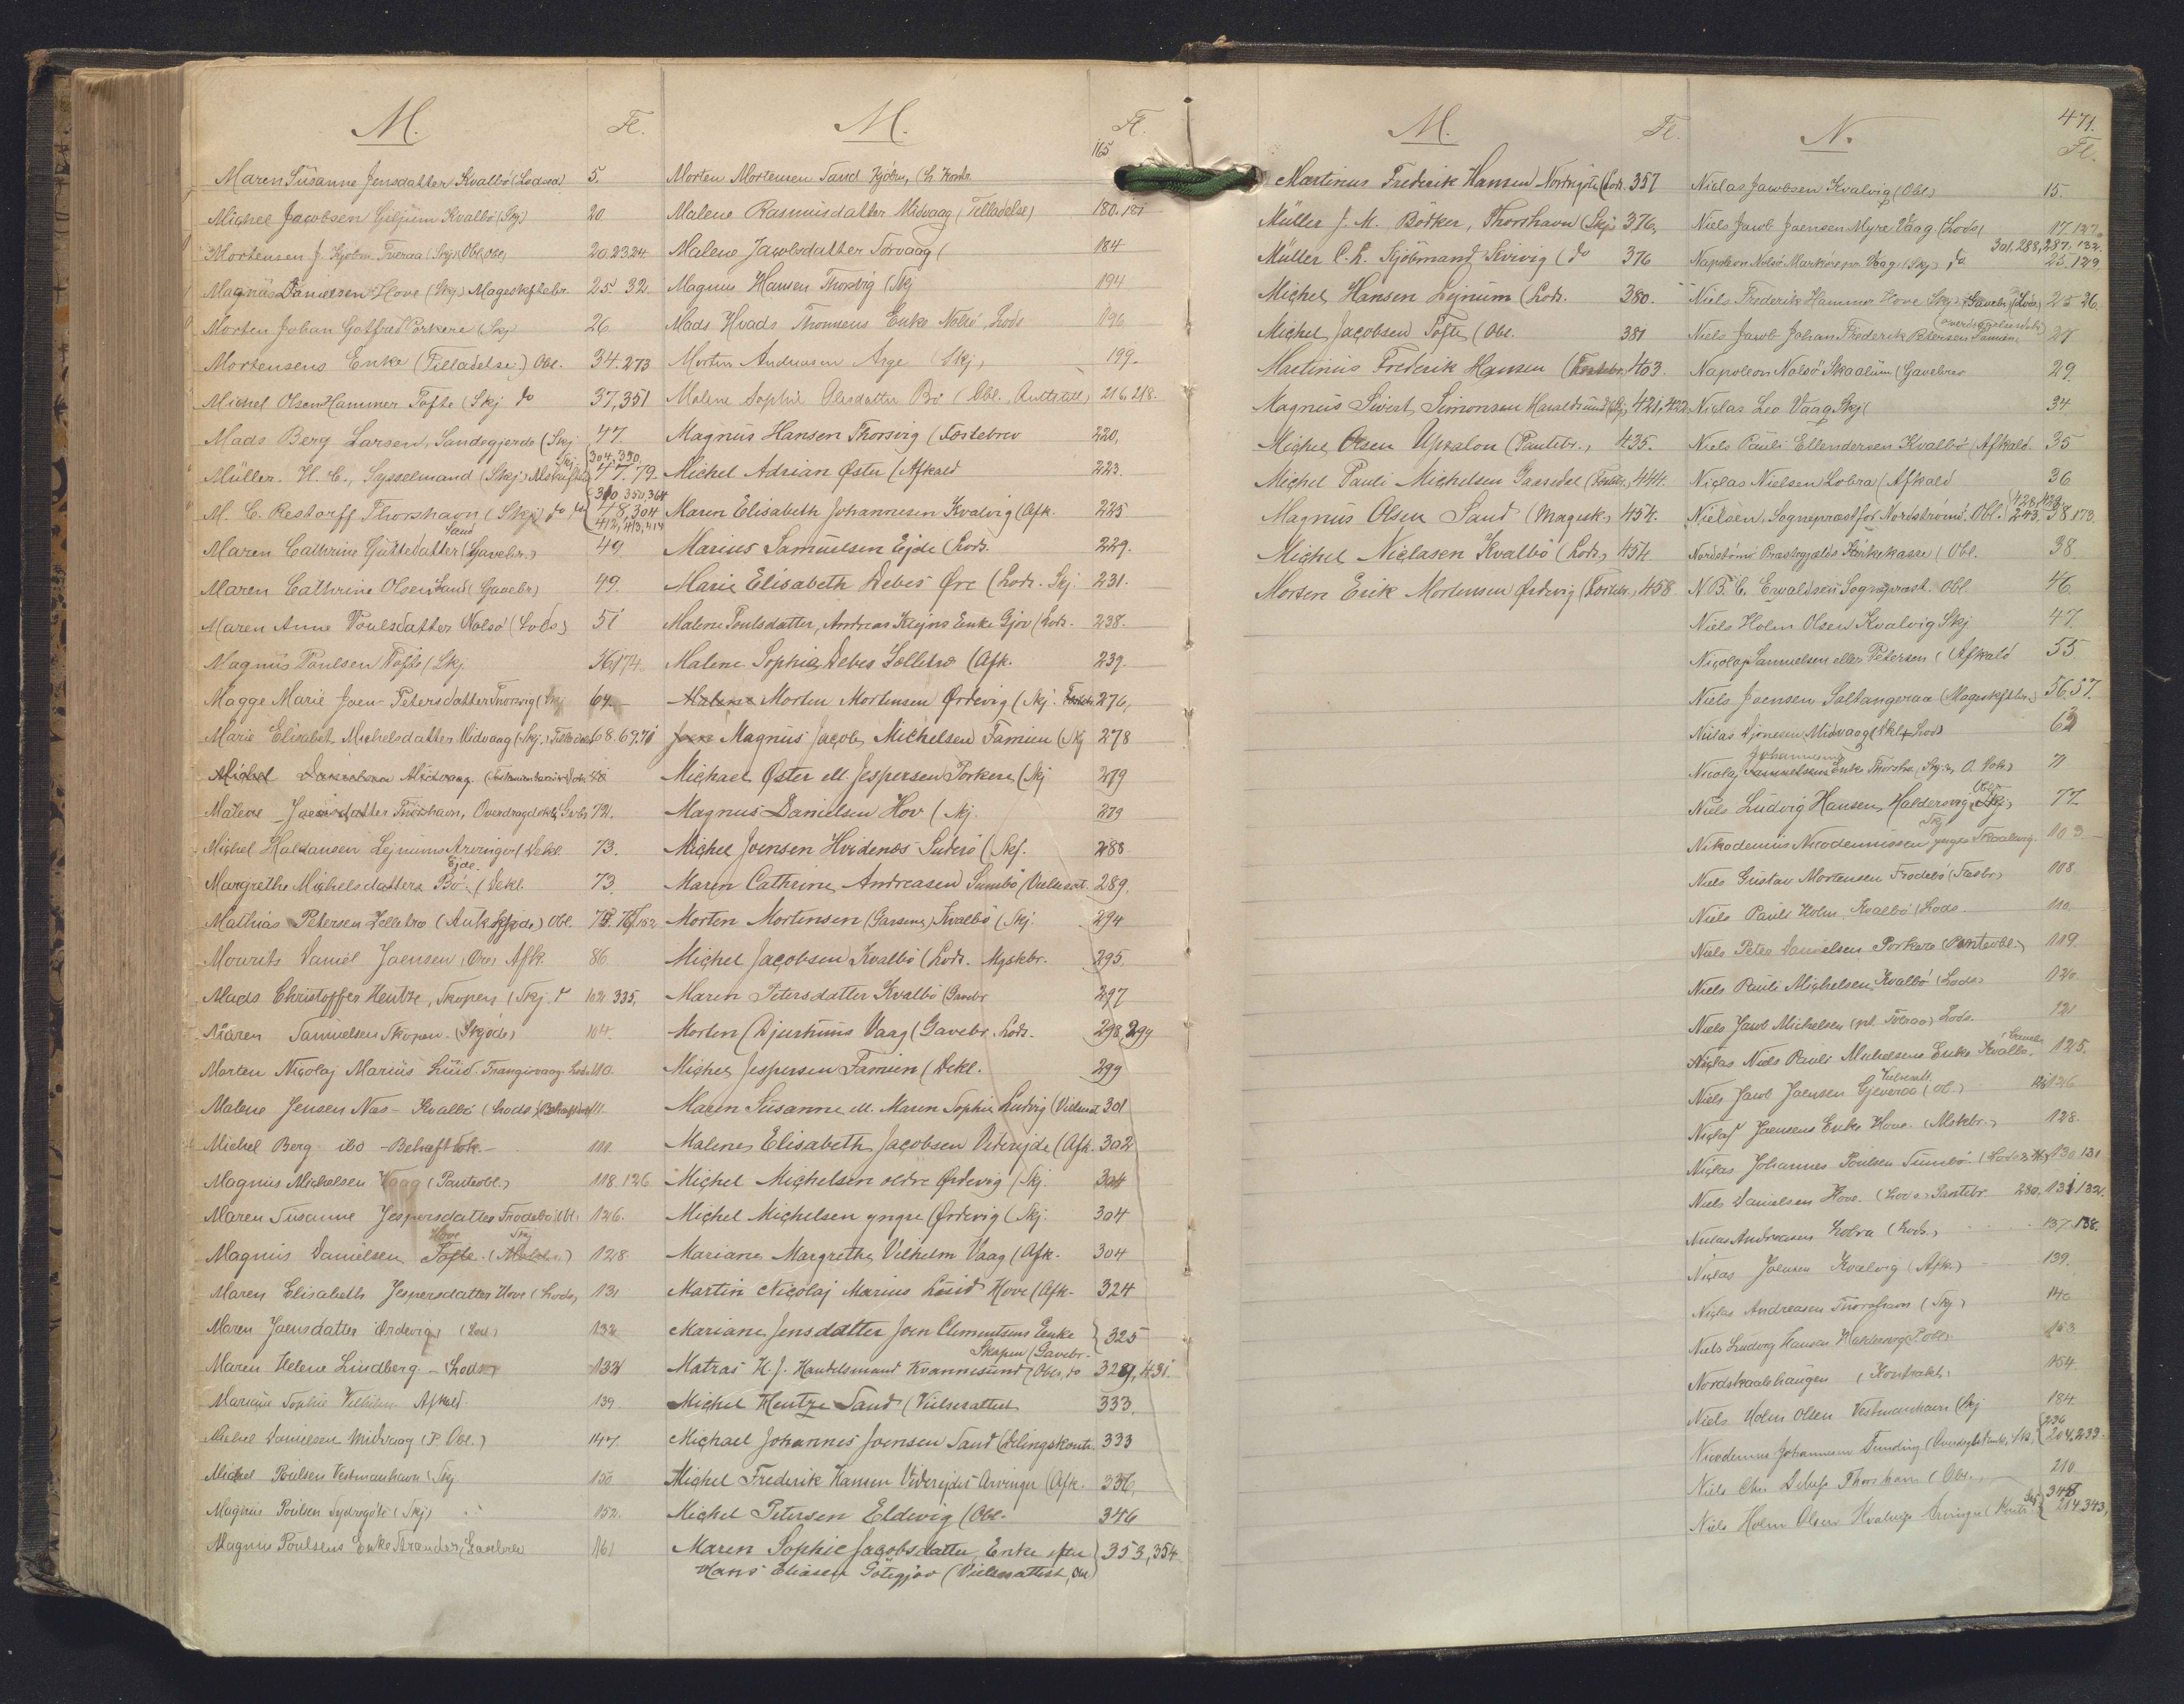 M.
Fl.
Maren Susanne Jensdatter Kvalbö (Lodsed) 5.
Michel Jacobsen Giljum Kvalbö (Skj) 20
Mortensen J. Kjøbm. Tveraa (Skj), Obl, Obl, 20.23.24
Magnus Danielsen Hove (Skj) Mageskiftebr. 25. 32.
Morten Johan Gotfred Porkere (Skj 26
Mortensens Enke (Tilladelse) Obl. 34.273
Michel Olsen Hammer Tofte (Skj do 37,351
Mads Berg Larsen, Sandsgjerde (Skj 47.
Skj. 304,390,
Müller. H. C., Sysselmand (Skj) 47.79.
310,350,364
M. C. Restorff Thorshavn (Skj) do, do 48,304
Sand 412,413,414
Maren Cathrine Guttedatter (Gavebr.) 49
Maren Cathrine Olsen Sand (Gavebr) 49.
Maren Anne Poulsdatter Nolsö (Lods) 51
Magnus Poulsen Tofte (Skj 36,174.
Magge Marie Joen-Petersdatter Thorsvig (Skj 64.
Marie Elisabet Michelsdatter Midvaag (Skj.) 68.69.71
Michel Danielsen Midvaag.
Malene Joensdatter Thorshavn, 72.
Michel Haldansen Lejnums Arvinger (Dekl. 73.
Ejde
Margrethe Michelsdatters Bö (Dekl. 73.
Mathias Petersen Selletræ Obl.
Mourits Daniel Joensen, Øre, Afk. 86
Mads Christoffer Hentze, Skopen (Skj. 102. 335.
Maren Samuelsen Skopen. (Skjøde) 104.
Morten Nicolaj Marius Lüid. Trangisvaag. Lods 110.
Malene Jensen Næs - Kvalbö (Lods) 111.
Michel Berg ibd - Behæft. Dok. - 111.
Magnus Michelsen Vaag (Panteobl.) 118.126
Maren Susanne Jespersdatter Frodebö (Obl. 126.
Hove Skj
Magnus Danielsen Tofte. 128.
Maren Elisabeth Jespersdatter Hove (Lods, 131
Maren Joensdatter Ørdevig (Lod.) 132
Maren Helene Lindberg - (Lods) 132
Mariane Sophie Vilhelm Afkald. 139
Michel Danielsen Midvaag (P. Obl.) 147.
Michel Poulsen Vestmanhavn (Skj 150
Magnus Poulsen Sydregöte (Skj) 152.
Magnus Poulsens Enke Strander (Gavebrev 161
M.
Fl.
165
Morten Mortensen Sand Kjøbm,
Malene Rasmusdatter Midvaag (Tilladelse) 180.181
Malene Jacobsdatter Sorvaag ( 184
Magnus Hansen Thorsvig (Skj 194
Mads Hvads Thomsens Enke Nolsö, Lods 196
Morten Andreasen Arge (Skj, 199.
Malene Sophie Olesdatter Bö (Obl., 216,218.
Magnus Hansen Thorsvig (Fæstebrev 220,
Michel Adrian Øster (Afkald 223.
Maren Elisabeth Johannesen Kvalvig (Afk. 225
Marius Samuelsen Ejde (Lods. 229.
Marie Elisabeth Debes Øre (Lods. Skj. 231.
Malene Poulsdatter, Andreas Klejns Enke Gjov (Lods. 238.
Malene Sophie Debes Selletræ (Afk. 239.
Malene Morten Mortensen Ørdevig (Skj. 276,
Magnus Jacob Michelsen Famien (Skj 278
Michael Øster ell. Jespersen Porkere (Skj 279
Magnus Danielsen Hov (Skj. 279
Michel Joensen Hvidenæs Suderö (Skj. 288
Maren Cathrine Andreasen Sumbö (Vielsesat. 289.
Morten Mortensen (Garsene) Kvalbö (Skj. 294
Michel Jacobsen Kvalbö (Lods. Mgskbr. 295,
Maren Petersdatter Kvalbö (Gavebr 297
Morten Djurhuus Vaag (Gavebr. Lods. 298,299
Michel Jespersen Famien (Dekl. 299
Maren Susanne ell. Maren Sophie Ludvig (Vielsesat 301
Malene Elisabeth Jacobsen Viderejde (Afk. 302
Michel Michelsen ældre Ørdevig (Skj. 304
Michel Michelsen yngre Ørdevig (Skj. 304
Mariane Margrethe Vilhelm Vaag (Afk. 304
Martin Nicolaj Marius Lüid Hove (Afk. 324
Mariane Jensdatter Joen Clementsens Enke } 325
Skopen (Gavebr.
Matras H. J. Handelsmand Kvannesund (Obl., do 329,431.
Michel Hentze Sand (Vielsesattest 333.
Michael Johannes Joensen Sand (Delingskontr. 333
Michel Frederik Hansen Viderejdes Arvinger (Afk. 336.
Michel Petersen Eldevig (Obl. 346
Maren Sophie Jacobsdatter, Enke efter } 353,354
Hans Eliasen Götegjov (Vielsesattest, Obl)
M.
Fl.
Martinus Frederik Hansen Nordregöte (Lods. 357
Müller J. M. Bödker, Thorshavn (Skj 376,
Müller C. L. Kjöbmand Kvivig (do 376
Michel Hansen Lejnum (Lods. 380.
Michel Jacobsen Tofte (Obl. 381
Martinus Frederik Hansen (Fæstebr. 403.
Magnus Sivert Simonsen Haraldssund (Skj, 421,422
Michel Olsen Upsalon (Pantebr., 435.
Michel Pauli Michelsen Gaasedal (Fæstebr., 444.
Magnus Olsen Sand (Magesk., 454.
Michel Niclasen Kvalbö (Lods., 454
Morten Erik Mortensen Ørdevig (Fæstebr., 458
471.
N.
Fl.
Niclas Jacobsen Kvalvig (Obl.) 15.
Niels Jacob Joensen Myre Vaag. (Lods, 17.127.
301.288,287.132.
Napoleon Nolsö Markøre pr. Vaag. (Skj), do 25.129.
Niels Frederik Hammer Hove Skj. Gavebr. (Lods) 25 26.
Niels Jacob Johan Frederik Petersen Famien, 27
Napoleon Nolsö Skaalum (Gavebrev 29
Niclas Leo Vaag Skj( 34
Niels Pauli Ellendersen Kvalbö (Afkald. 35
Niclas Nielsen Lobra (Afkald 36
Nielsen, Sognepræst for Nordströmö. Obl. 243. 38.173.
Nordströmö Præstegjælds Kirkekasse (Obl. 38
N. B. C. Evaldsen Sognepræst. Obl. 46
Niels Holm Olsen Kvalvig Skj 47.
Nicolaj Samuelsen eller Petersen (Afkald 55
Niels Joensen Saltangeraa (Mageskftbr.) 56,57.
Niclas Djonesen Midvaag Lods 63
Johannesens
Nicolaj Samuelsens Enke 71
Niels Ludvig Hansen, Haldersvig (Skj) 77
Skj
Nikodemus Nicodemussen yngre Skaalevig. 103
Niels Gustav Mortensen Frodebö (Fæsbr) 108.
Niels Pauli Holm, Kvalbö (Lods. 110.
Niels Peter Danielsen Porkere (Panteobl.) 119.
Niels Pauli Michelsen Kvalbö (Lods) 120.
Niels Jacob Michelsen Lods. 121
Niclas Niels Pauli Michelsens Enke Kvalbö. 125.
Niels Jacob Joensen Gjeveraa (Obl.) 126
Niclas Joensens Enke Hove. 128.
Niclas Johannes Poulsen Sumbö. (Lods, 130.131
Niels Danielsen Hove. (Lods. Pantebr. 280, 131.132.
Niclas Andreasen Lobra (Lods.) 137.138.
Niclas Joensen Kvalvig (Afk.) 139.
Niclas Andreasen Thorshavn (Skj) 140
Niels Ludvig Hansen Haldersvig P. obl. 153
Nordskaalehaugen (Kontrakt. 154
Niels Holm Olsen Vestmanhavn (Skj 184
236
Nicodemus Johannesen Funding 204,233.
Niels Chr. Debes Thorshavn (Obl., 210
Skj 348
Niels Holm Olsen Kvalvigs Arvinger 214,343,